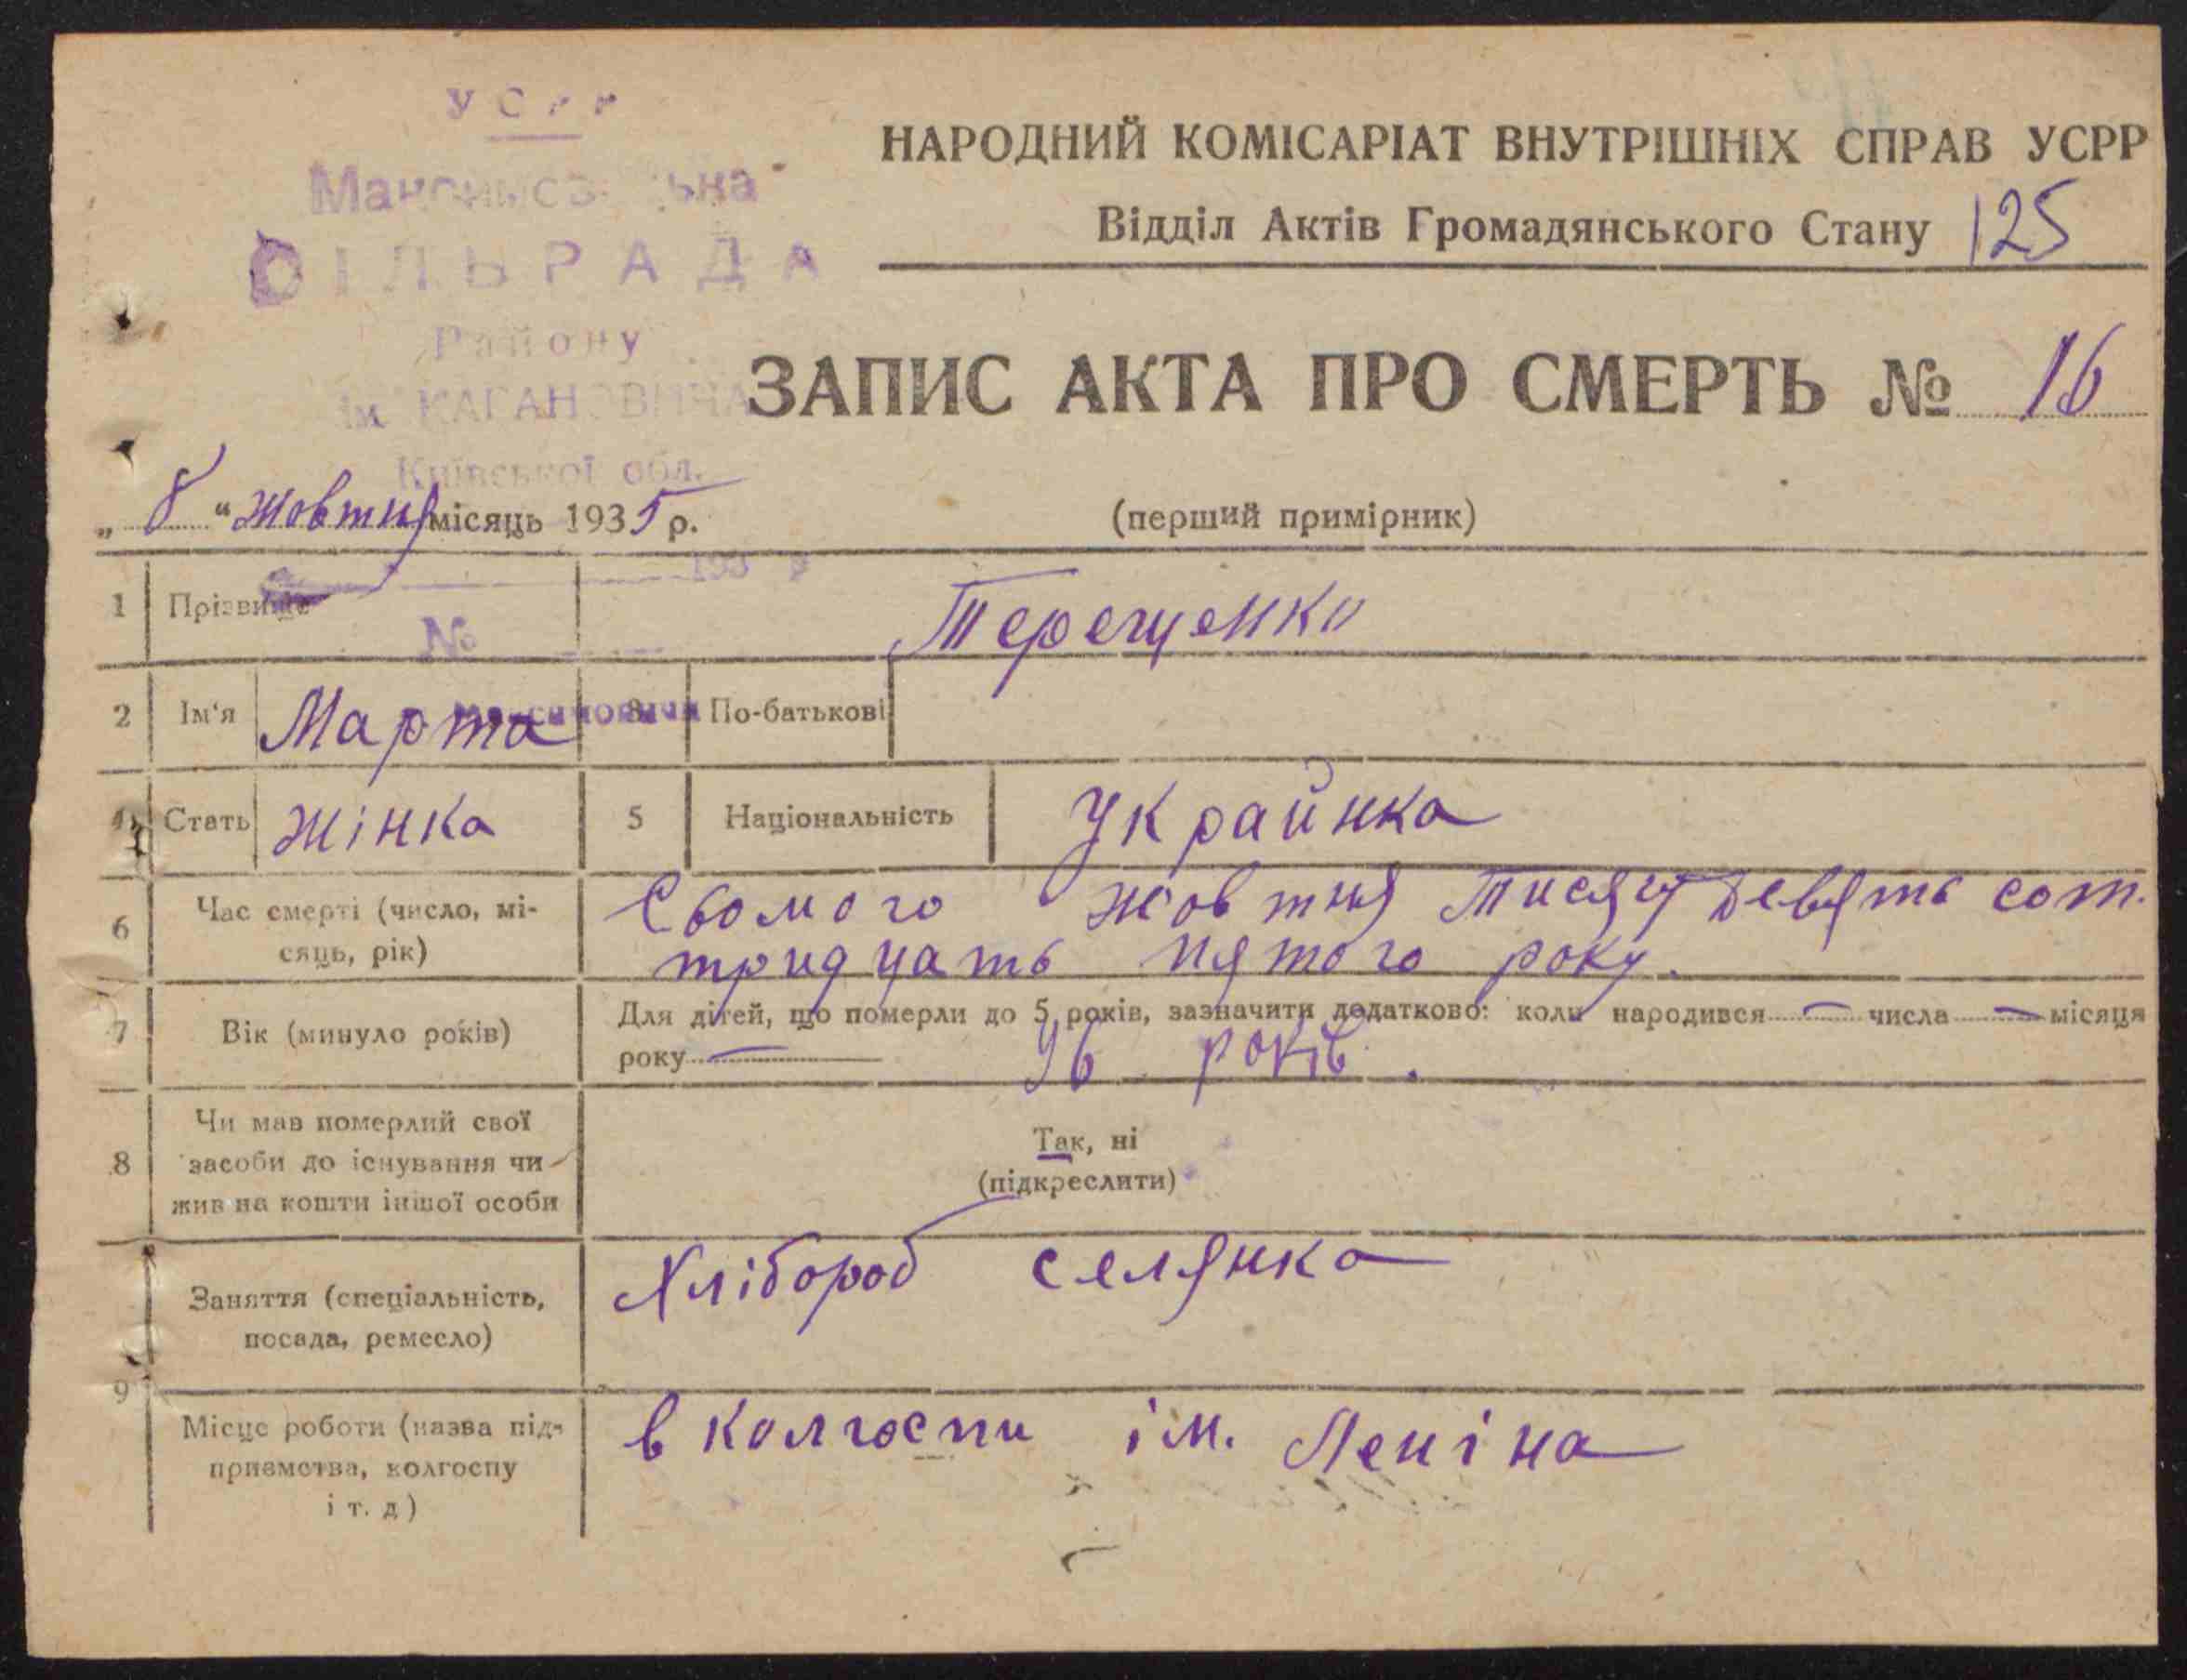 УСРР
СІЛЬРАДА
Району
ім КАГАНОВИЧА
Київської обл.
НАРОДНИЙ КОМІСАРІАТ ВНУТРІШНІХ СПРАВ УСРР
Відділ Актів Громадянського Стану 125
ЗАПИС АКТА ПРО СМЕРТЬ № 16
„ 8 “ Жовтня місяць 1935 р.
(перший примірник)
193 р
1 Прізвище Терещенко
№
2 Ім‘я Марта 3 По-батькові
4 Стать Жінка 5 Національність Украйнка
6 Час смерті (число, мі-
сяць, рік)
Сьомого жовтня тисяч девять сот.
тридцать пятого року.
7 Вік (минуло років)
Для дітей, що померли до 5 років, зазначити додатково: коли народився числа місяця
року 96 років.
8 Чи мав померлий свої
засоби до існування чи
жив на кошти іншої особи
Так, ні
(підкреслити)
9 Заняття (спеціальність,
посада, ремесло)
Хлібороб селянка
Місце роботи (назва під-
приємства, колгоспу
і т. д)
в колгоспи ім. Леніна